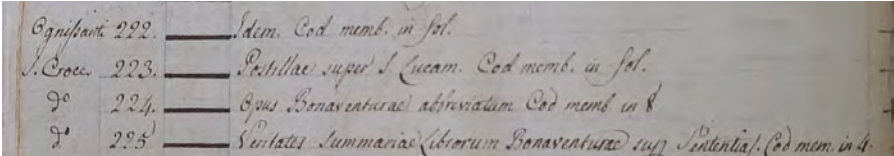 Ognissanti 222. Idem. Cod memb. in fol.
S. Croce. 223. Postillae super S Lucam. Cod memb. in fol.
do 224. Opus Bonaventurae abbreviatum Cod memb. in 8
do 225 Veritates Summariae Librorum Bonaventurae sup Sententias. Cod mem. in 4.